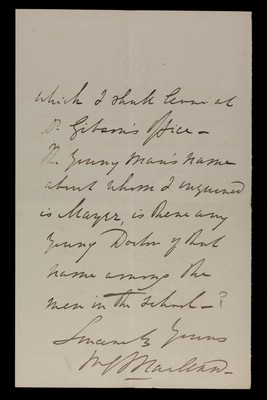 which I shall leave at
Dr. Gibson's office -
The young man's name
about whom I enquired
is Mayer, is there any
young Doctor of that
name among the
men in the school - ?
Sincerely Yours